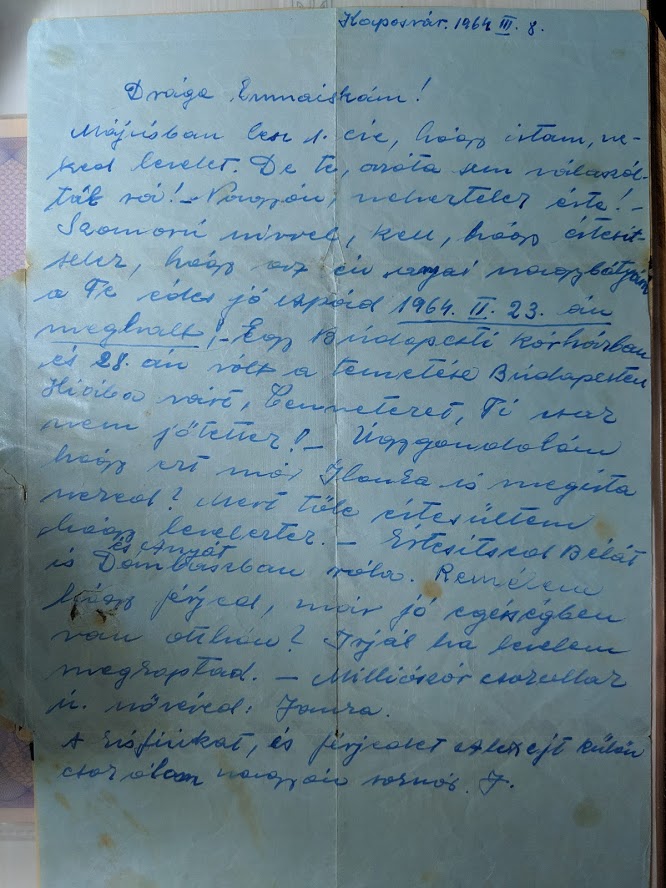 Kaposvár. 1964 III. 8.
Drága Emmaiskám!
Májúsban lesz 1. éve, hógy irtam, ne-
ked levelet. De te, azóta sem válaszol-
tál rá! – Nagyón, neheztelek érte! –
Szomorú szivvel, kell, hógy értesit-
selek, hógy az én anyai nagybátyám
a Te édes jó apád 1964. II. 23. án
meghalt! – Egy Búdapesti kórházban
és 28. án vólt a temetése Búdapesten
Hiába várt, Benneteket, Ti csak
nem jöttetek! – Úgygondolóm
hógy ezt már Ilonka is megirta
neked? Mert tőle értesültem
hógy leveleztek. – Értesitsed Bélát
és Anyát
is Dombaszban róla. Remélem
hógy férjed, már jó egésségben
van otthon? Irjál ha levelem
megkaptad. – Milliószór csókollak
ú. nővéred: Janka.
A kisfiúkat, és férjedet külön
csókólom nagyón sokszór. J.